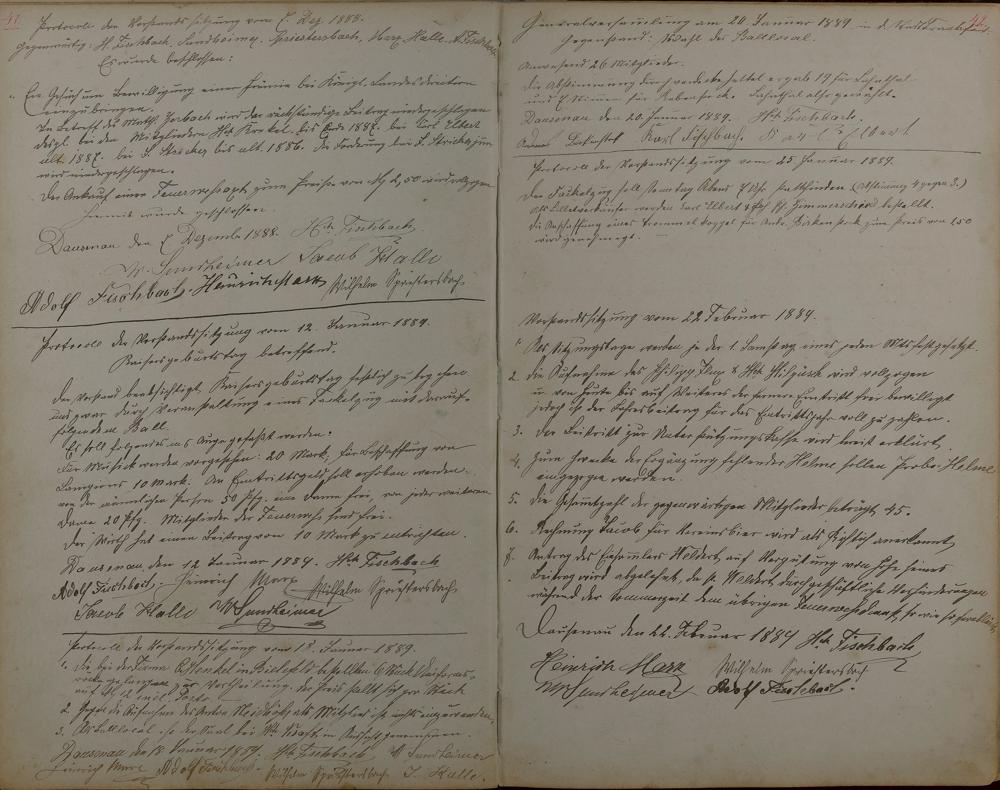 41
Protocoll der Vorstandssitzung vom 7. Dez. 1888.
Gegenwärtig: H. Fischbach, Sundheimer, Spriestersbach, Marx, Halle, A. Fischbach
Es wurde beschlossen:
Ein Gesuch um Bewilligung einer Prämie bei Königl. Landesdirection
einzubringen.
In Betreff des Mitgl. wird der rückständige Beitrag niedergeschlagen
desgl. bei den Mitgliedern bis Ende 1887. bei Carl Elbert
ult. 1887. bei bis ult. 1886. Die Forderung von
wird niedergeschlagen.
Der Ankauf einer zum Preise von M 2,50 wird vollzogen
Hiermit wurde geschlossen.
Dausenau den 7. Dezembr 1888. Hch Fischbach
W. Sundheimer Jacob Halle
Adolf Fischbach. Heinrich Marx Wilhelm Spriestersbach
Protocoll der Vorstandssitzung vom 12. Januar 1889.
Kaisersgeburtstag betreffend.
Der Vorstand beabsichtigt, Kaisersgeburtstag festlich zu begehen
und zwar durch Veranstaltung eines Fackelzug mit darauf-
folgendem Ball.
Es soll folgendes ins Auge gefaßt werden.
Für Musick werden vorgesehen: 20 Mark, für Beschaffung von
Lampions 10 Mark. An Eintrittsgeld soll erhoben werden:
von der männlichen Person 50 Pfg. eine Dame frei, von jeder weiteren
Dame 20 Pfg. Mitglieder der Feuerwehr sind frei.
Der Wirth hat einen Beitrag von 10 Mark zu entrichten.
Dausenau, den 12 Januar 1889. Hch Fischbach
Adolf Fischbach. Heinrich Marx Wilhelm Spriestersbach
Jacob Halle W. Sundheimer
Protocoll der Vorstandssitzung vom 18. Januar 1889.
1. Die bei der Firma in Bielefeld bestellten 6 Stück
gelangen zur Vertheilung. Der Preis stellt sich pro Stück
auf M incl. Porto.
2. Gegen die Aufnahme des Anton als Mitglied ist nichts einzuwenden.
3. Als Balllocal ist der Saal bei in Aussicht genommen.
Dausenau den 18. Januar 1889. Hch Fischbach W. Sundheimer
Heinrich Marx Adolf Fischbach. Wilhelm Spriestersbach J. Halle.
Generalversammlung am 20 Januar 1889 in der
Gegenstand: Wahl des Balllocal.
Anwesend 26 Mitglieder.
Die Abstimmung durch verdeckte Zettel ergab 19 für
und 7 Stimmen für also gewählt.
Dausenau den 20. Januar 1889. Hch Fischbach.
Karl Fischbach Karl Elbert
Protocoll der Vorstandssitzung vom 25 Januar 1889.
Der Fackelzug soll Sonntag Abend 7 Uhr stattfinden (Abstimmung 4 gegen 3.)
Als Billetverkäufer werden Carl Elbert & Zimmerschied bestellt.
Die Anschaffung eines für Ant. zum Preis von 1.50
wird genehmigt.
Vorstandssitzung vom 22 Februar 1889.
1. Als Sitzungstage werden je der 1. Samstag eines jeden Mts. festgesetzt.
2. Die Aufnahme des Philipp & Hch Hilgert wird vollzogen
u. von heute bis auf Weiteres der fernere Eintritt frei bewilligt
jedoch ist der Jahresbeitrag für das Eintrittsjahr voll zu zahlen.
3. Der Beitritt zur Unterstützungskasse wird erklärt.
4. Zum Zwecke der Ergänzung fehlender Helme sollen Probe-Helme
eingezogen werden.
5. Die Gesamtzahl der gegenwärtigen Mitglieder beträgt 45.
6. Rechnung Jacob für Vereinsbier wird als richtig anerkannt.
7. Antrag des Weldert, auf Vergütung von Höhe seines
Beitrag wird abgelehnt, da Weldert durch geschäftliche Verhinderungen
während der Sommerzeit dem übrigen Feuerwehrdienst,
Dausenau den 22. Februar 1889 Hch Fischbach
Heinrich Marx Wilhelm Spriestersbach
W. Sundheimer Adolf Fischbach.